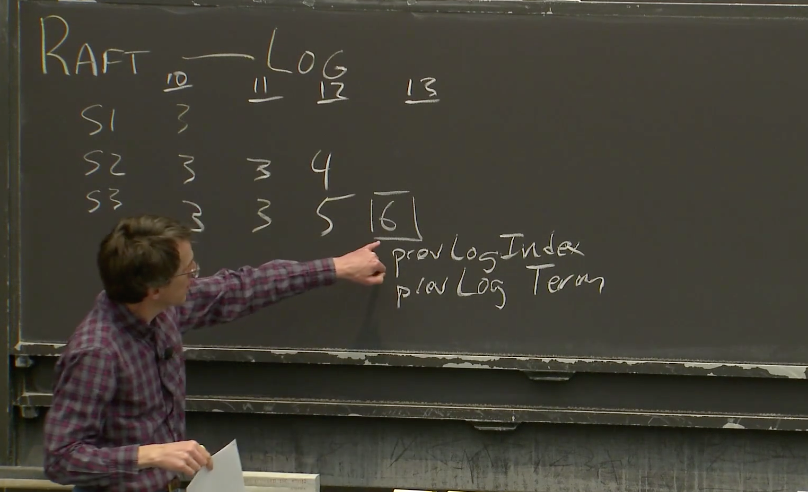 RAFT — LOG
10 11 12 13
S1 3
S2 3 3 4
S3 3 3 5 6
prevLogIndex
prevLog Term